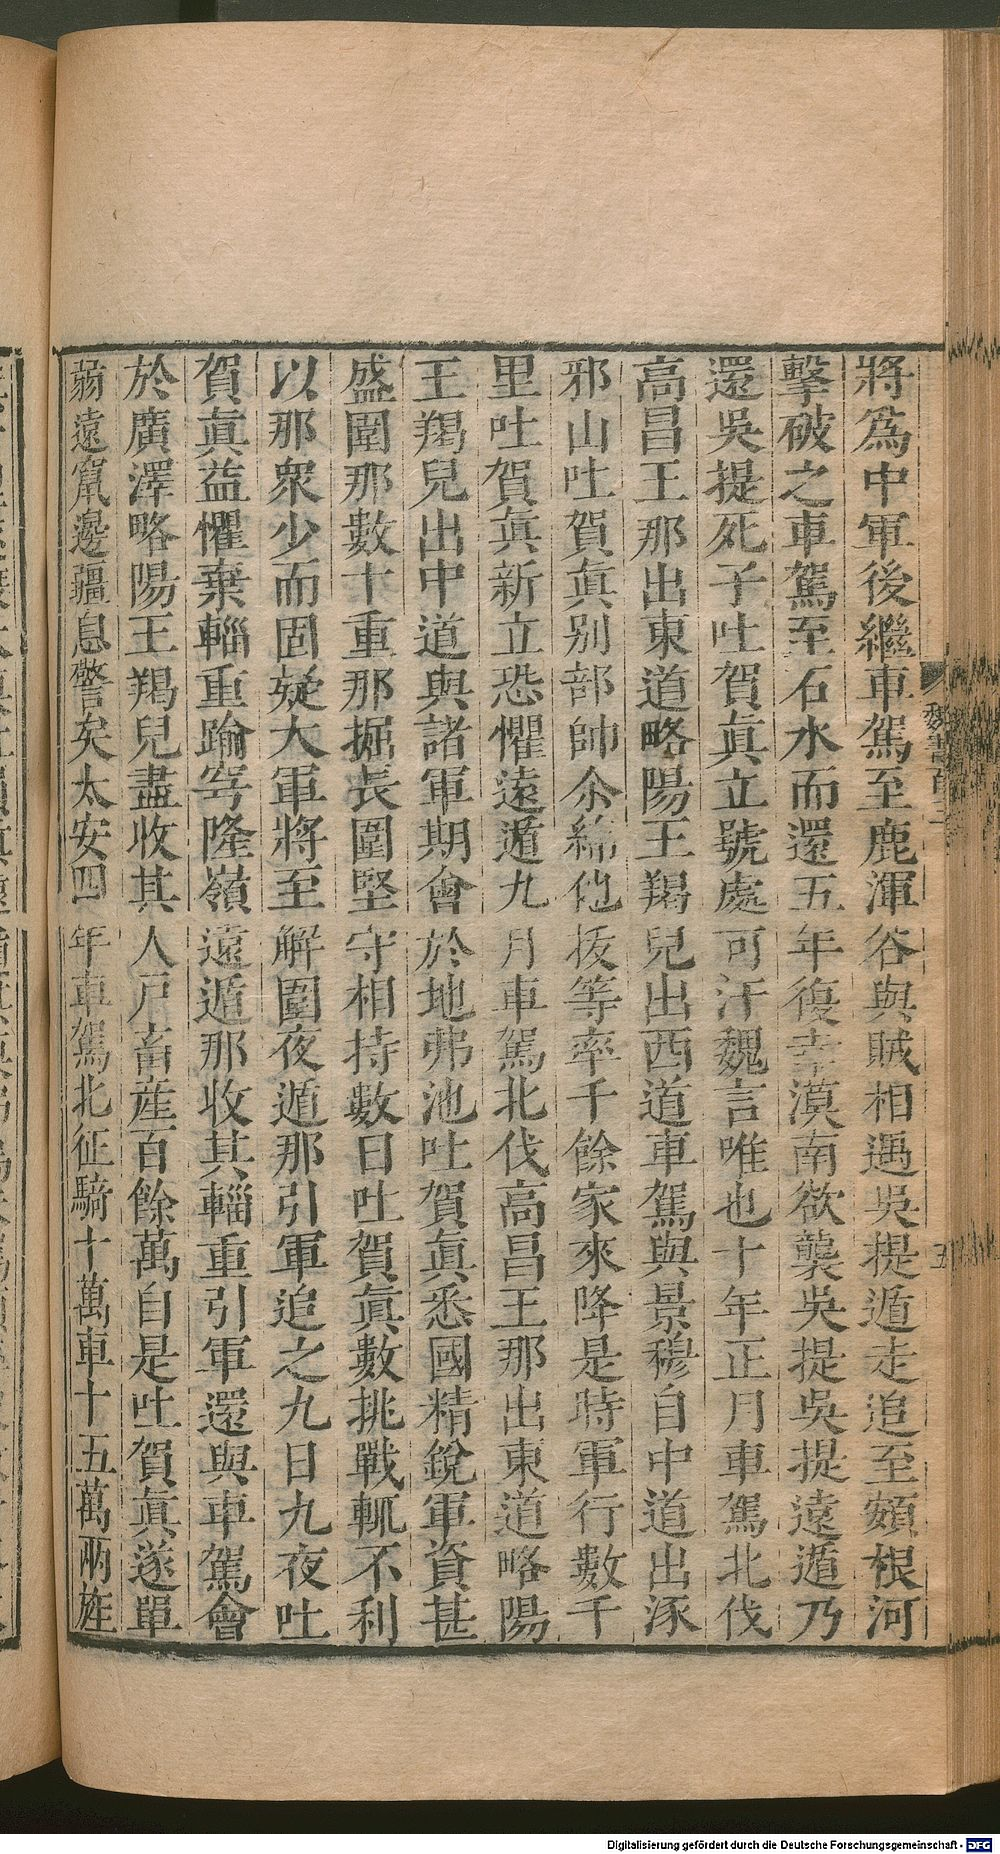 將爲中軍後繼車駕至鹿渾谷與賊相遇吳提遁走追至頞根河
擊破之車駕至石水而還五年復幸漠南欲襲吳提吳提遠遁乃
還吳提死子吐賀眞立號處可汗魏言唯也十年正月車駕北伐
高昌王那出東道略陽王羯兒出西道車駕與景穆自中道出涿
邪山吐賀眞別部帥尒綿他拔等率千餘家來降是時軍行數千
里吐賀眞新立恐懼遠遁九月車駕北伐高昌王那出東道略陽
王羯兒出中道與諸軍期會於地弗池吐賀眞悉國精銳軍資甚
盛圍那數十重那掘長圍堅守相持數日吐賀眞數挑戰輒不利
以那衆少而固疑大軍將至解圍夜遁那引軍追之九日九夜吐
賀眞益懼棄輜重踰穹隆嶺遠遁那收其輜重引軍還與車駕會
於廣澤略陽王羯兒盡收其人戶畜産百餘萬自是吐賀眞遂單
弱遠竄邊疆息警矣太安四年車駕北征騎十萬車十五萬兩旌
Digitalisierung gefördert durch die Deutsche Forschungsgemeinschaft - DFG